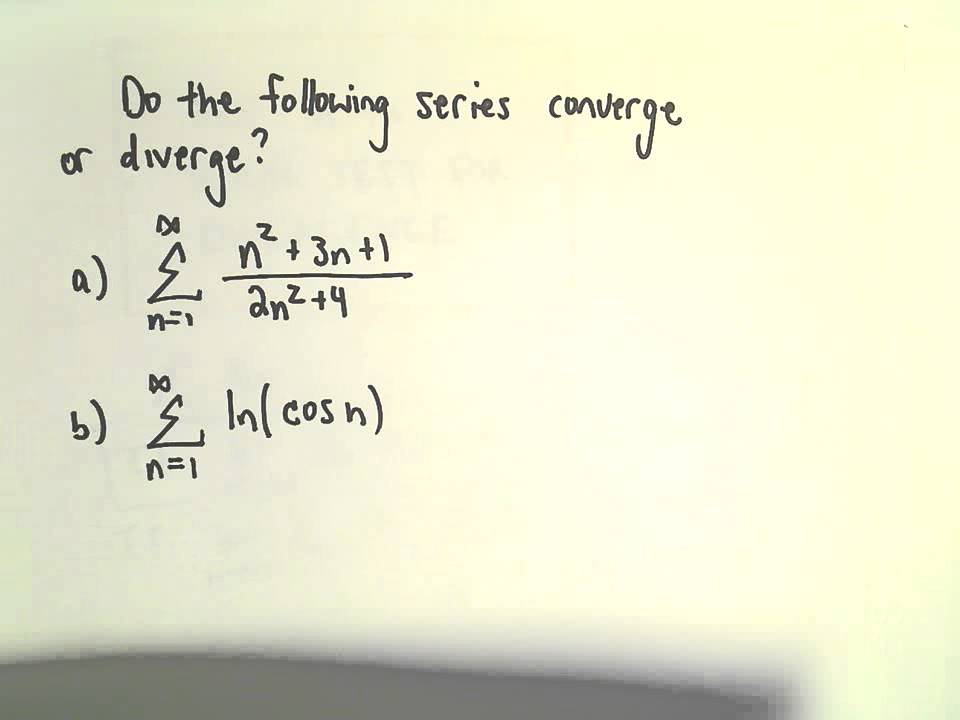 Do the following series converge
or diverge?
a) ∞ Σ n=1 n²+3n+1 / 2n²+4
b) ∞ Σ n=1 ln(cos n)